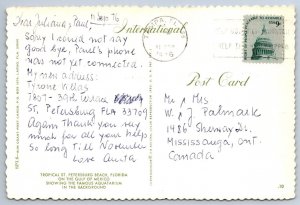 Dear Juliana, Paul,
Sorry I could not say
good bye, Paul's phone
was not yet connected.
My new address:
Tyrone Villas
7857-39th Terrace
St. Petersburg FLA 33709
Again Thank you very
much for all your help
So long Till November
Love Anita
TROPICAL ST. PETERSBURG BEACH, FLORIDA
ON THE GULF OF MEXICO
SHOWING THE FAMOUS AQUATARIUM
IN THE BACKGROUND
International
Post Card
Mr & Mrs
W J Palmark
1486 Sherway Dr.
Mississauga, Ont.
Canada